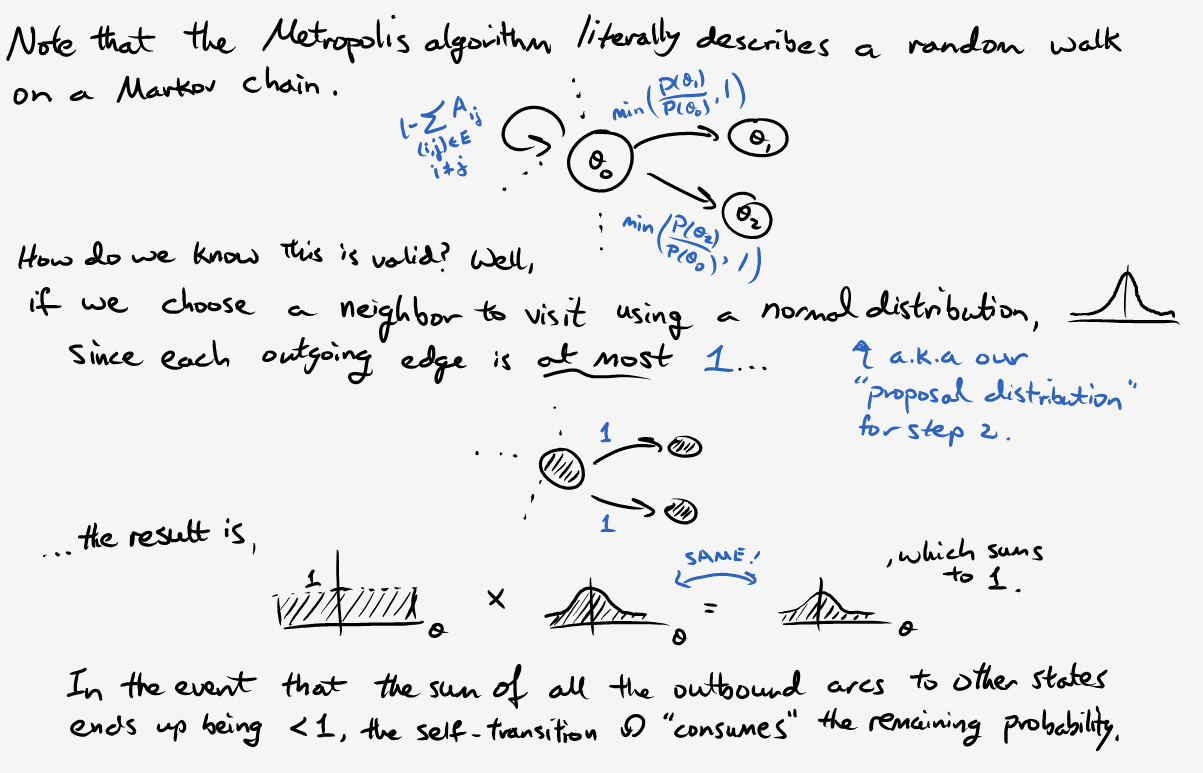 Note that the Metropolis algorithm literally describes a random walk
on a Markov chain.
1-∑ A_ij
(i,j)∈E
i≠j
min(P(θ₁)/P(θ₀), 1)
θ₀
θ₁
θ₂
min(P(θ₂)/P(θ₀), 1)
How do we know this is valid? Well,
if we choose a neighbor to visit using a normal distribution,
since each outgoing edge is at most 1...
↑ a.k.a our
"proposal distribution"
for step 2.
1
1
...the result is,
1
θ
×
θ
SAME!
=
θ
, which sums
to 1.
In the event that the sum of all the outbound arcs to other states
ends up being <1, the self-transition ↺ "consumes" the remaining probability.